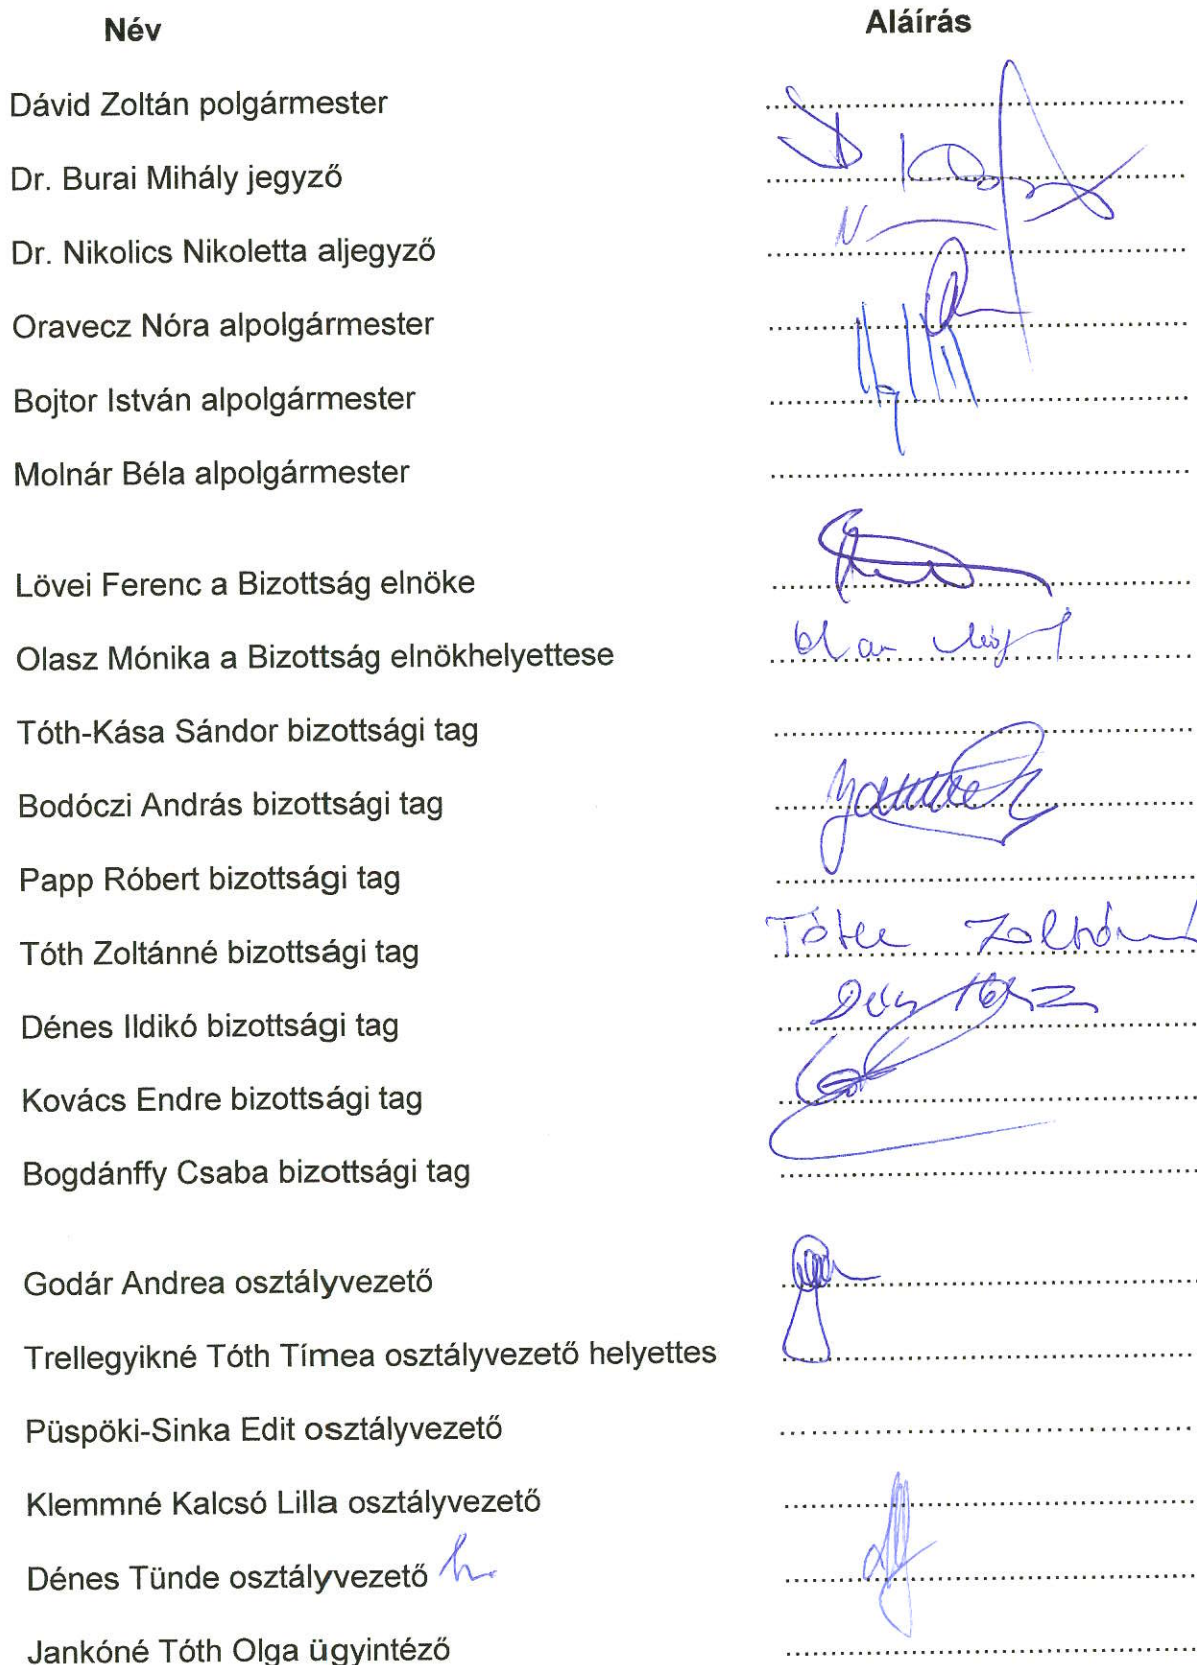 Név Aláírás
Dávid Zoltán polgármester
Dr. Burai Mihály jegyző
Dr. Nikolics Nikoletta aljegyző
Oravecz Nóra alpolgármester
Bojtor István alpolgármester
Molnár Béla alpolgármester
Lövei Ferenc a Bizottság elnöke
Olasz Mónika a Bizottság elnökhelyettese
Tóth-Kása Sándor bizottsági tag
Bodóczi András bizottsági tag
Papp Róbert bizottsági tag
Tóth Zoltánné bizottsági tag Tóth
Dénes Ildikó bizottsági tag
Kovács Endre bizottsági tag
Bogdánffy Csaba bizottsági tag
Godár Andrea osztályvezető
Trellegyikné Tóth Tímea osztályvezető helyettes
Püspöki-Sinka Edit osztályvezető
Klemmné Kalcsó Lilla osztályvezető
Dénes Tünde osztályvezető
Jankóné Tóth Olga ügyintéző